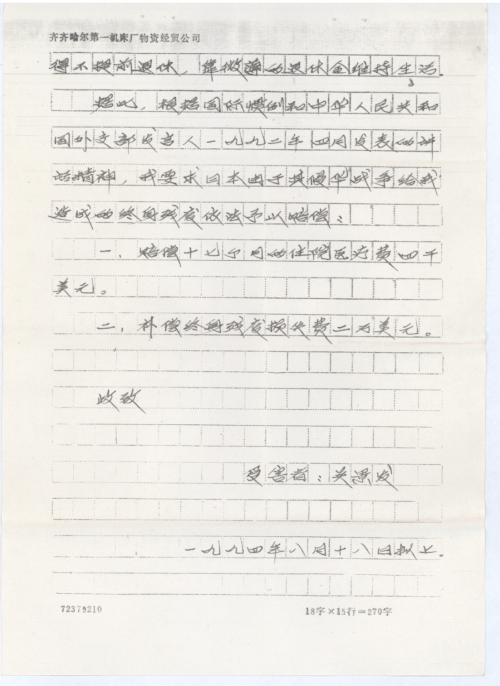 齐齐哈尔第一机床厂物资经贸公司
得不提前退休，靠微薄的退休金维持生活。
据此，根据国际惯例和中华人民共和
国外交部发言人一九九二年四月发表的讲
话精神，我要求日本由于其侵华战争给我
造成的终身残废依法予以赔偿：
一．赔偿十七个月的住院医疗费四千
美元。
二．补偿终身残废损失费二万美元。
此致
受害者：关景发
一九九四年八月十八日拟上．
72379210
18字×15行=270字